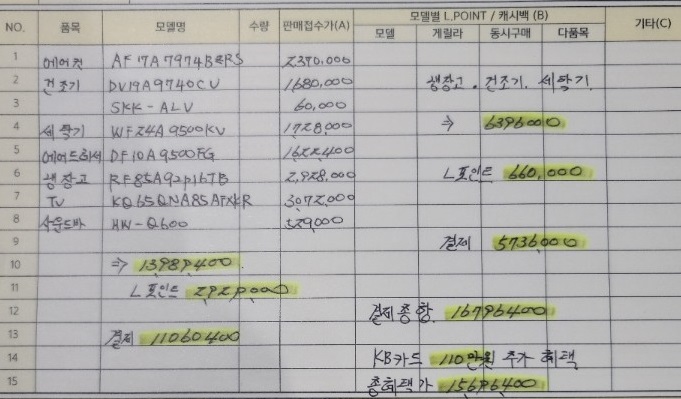 모델별 L.POINT / 캐시백 (B)
NO. 품목 모델명 수량 판매접수가(A) 모델 게릴라 동시구매 다품목 기타(C)
1 에어컨 AF17A7974BERS 2,370,000
2 건조기 DV19A9740CV 1680,000 냉장고. 건조기. 세탁기
3 SKK-ALV 60,000
4 세탁기 WF24A9500KV 1,728,000 ⇒ 6396000
5 에어드레서 DF10A9500FG 1622400
6 냉장고 RF85A92P1TB 2,928,000 L포인트 660,000
7 TV KQ65QNA85AFXKR 3,072,000
8 사운드바 HW-Q600 529,000
9 결제 5736000
10 ⇒ 13989400
11 L포인트 2929000
12 결제총합. 16796400
13 결제 11060400
14 KB카드 110만원 추가 혜택
15 총혜택가 15696400